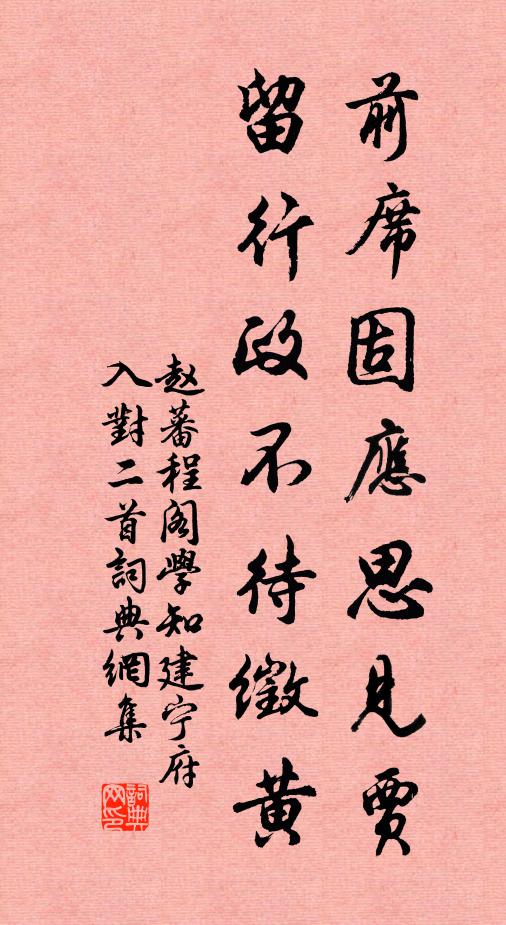 前席固應思見賈
留行政不待徵黃
赵蕃程阁學知建宁府
入對二首詞典網集
詞典網印